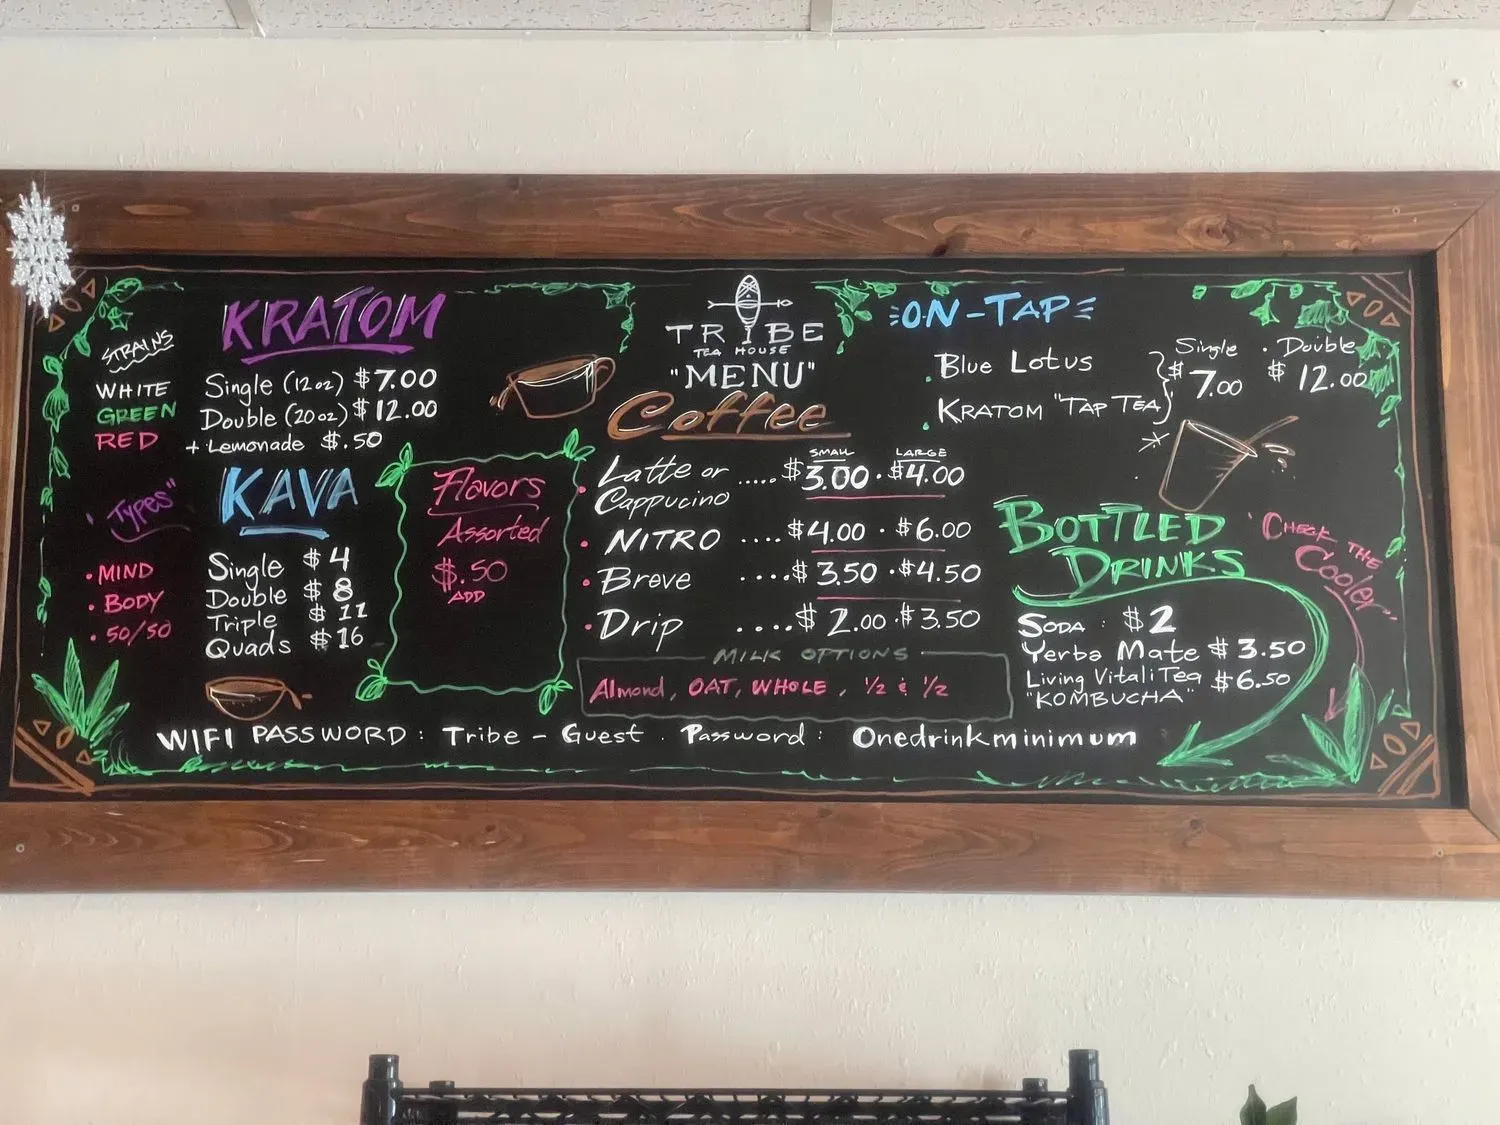 STRAINS
WHITE
GREEN
RED
KRATOM
Single (12oz) $7.00
Double (20oz) $12.00
+ Lemonade $.50
"Types"
• MIND
• BODY
• 50/50
KAVA
Single $4
Double $8
Triple $11
Quads $16
Flavors
Assorted
$.50
ADD
TRIBE
TEA HOUSE
"MENU"
Coffee
SMALL LARGE
• Latte or Cappucino ..... $3.00 • $4.00
• NITRO .... $4.00 • $6.00
• Breve .... $3.50 • $4.50
• Drip .... $2.00 • $3.50
MILK OPTIONS
Almond, OAT, WHOLE, ½ & ½
ON-TAP
Single • Double
• Blue Lotus
• KRATOM "TAP TEA"
$7.00 $12.00
BOTTLED
DRINKS
"CHECK THE
Cooler"
SODA: $2
Yerba Mate $3.50
Living VitaliTea
"KOMBUCHA" $6.50
WIFI PASSWORD: Tribe - Guest . Password: Onedrinkminimum